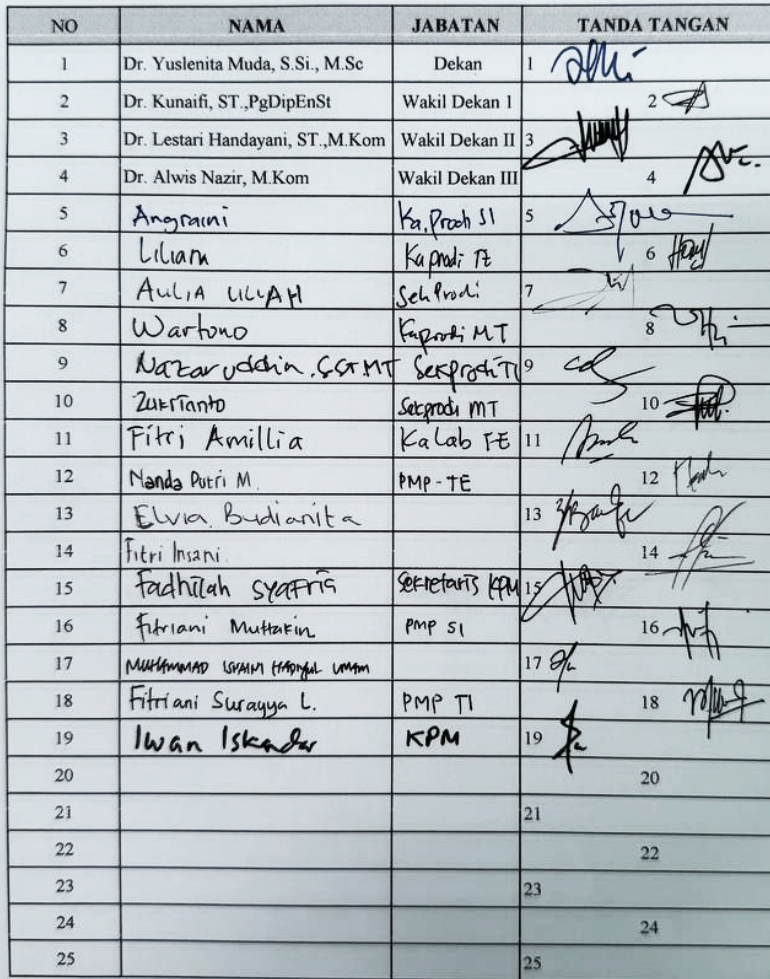 NO NAMA JABATAN TANDA TANGAN
1 Dr. Yuslenita Muda, S.Si., M.Sc Dekan 1
2 Dr. Kunaifi, ST.,PgDipEnSt Wakil Dekan 1 2
3 Dr. Lestari Handayani, ST.,M.Kom Wakil Dekan II 3
4 Dr. Alwis Nazir, M.Kom Wakil Dekan III 4
5 Angraini Ka.Prodi SI 5
6 Liliana Kaprodi TE 6
7 AULIA ULLAH SekProdi 7
8 Wartono Kaprodi MT 8
9 Nazaruddin. SST MT Sekprodi TI 9
10 Zukrianto Sekprodi MT 10
11 Fitri Amillia Kalab TE 11
12 Nanda Putri M. PMP-TE 12
13 Elvia Budianita 13
14 Fitri Insani 14
15 Fadhilah Syafria Sekretaris KPM 15
16 Fitriani Muttakin PMP SI 16
17 MUHAMMAD UMAM 17
18 Fitriani Surayya L. PMP TI 18
19 Iwan Iskandar KPM 19
20 20
21 21
22 22
23 23
24 24
25 25